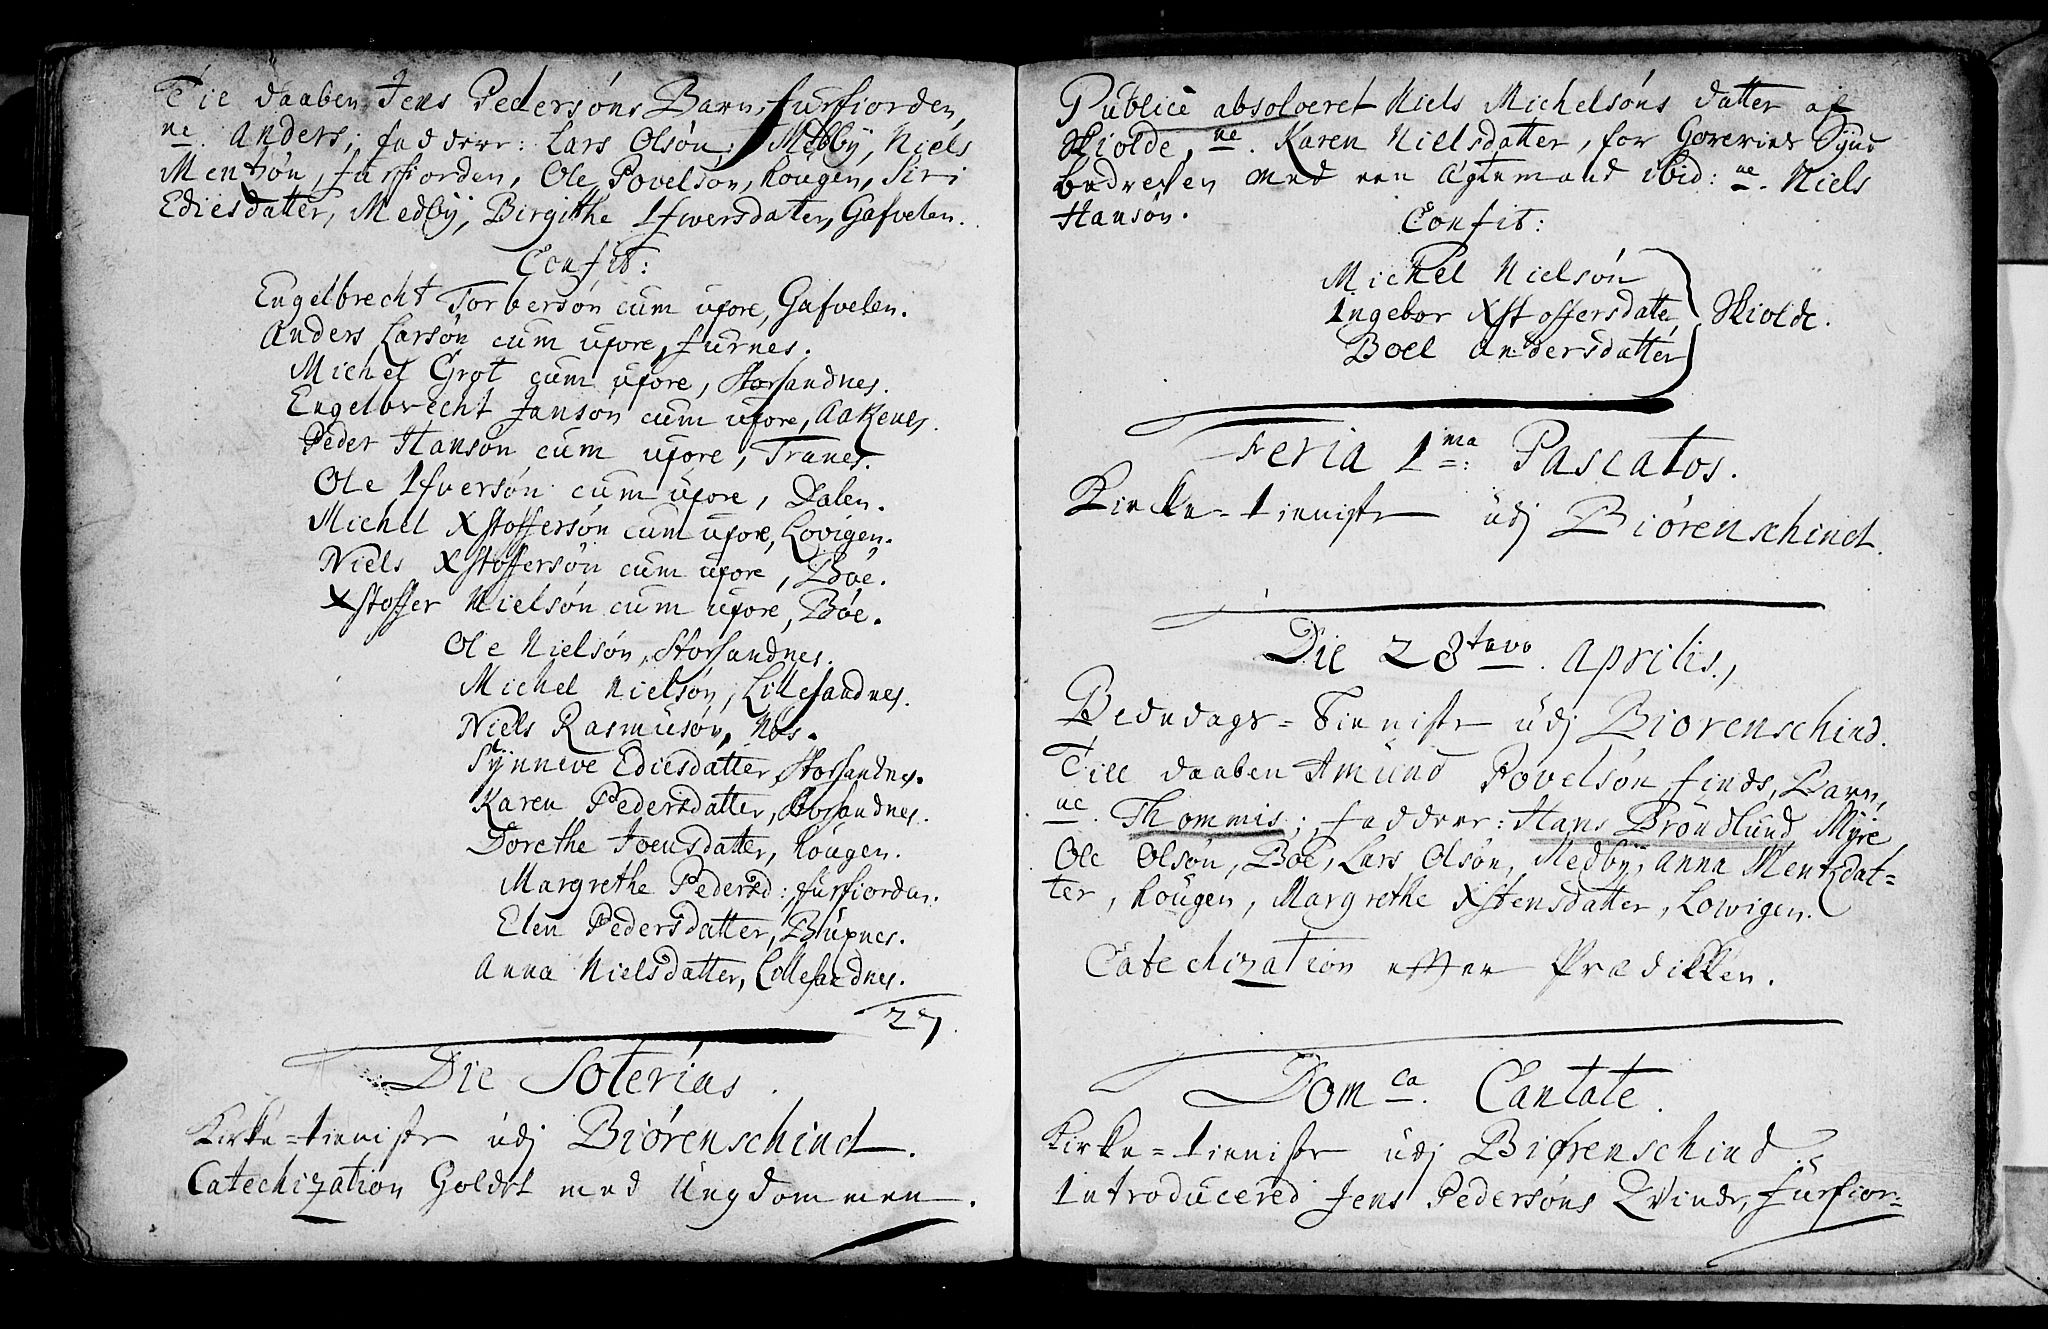 Til daaben Jens Pedersøns Barn, furfiorden,
ne. Anders; faddere: Lars Olsøn, Medbÿ, Niels
Mentsøn, furfiorden, Ole Povelsøn, Kougen, Siri
Ediesdatter, Medbÿ, Birgithe Ifwersdater, Gafvelen.
Confit:
Engelbrecht Torbersøn cum uxore, Gafvelen.
Anders Larsøn cum uxore, furnes.
Michel Grot cum uxore, Storsandnes.
Engelbrecht Jansøn cum uxore, Aakenes.
Peder Hansøn cum uxore, Tranes.
Ole Ifversøn cum uxore, Dalen.
Michel Xstoffersøn cum uxore, Lovigen.
Niels Xstoffersøn cum uxore, Bøe.
Xstoffer Nielsøn cum uxore, Bøe.
Ole Nielsøn, Storsandnes.
Michel Nielsøn, Lillesandnes.
Niels Rasmusøn, Nøs.
Sÿnneve Ediesdatter, Storsandnes.
Karen Pedersdatter, Storsandnes.
Dorethe Joensdatter, Kougen.
Margrethe Pedersd:, furfiorden.
Elen Pedersdatter, Buxnes.
Anna Nielsdatter, Lillesandnes.
27.
Die Soterias.
Kirke=tieniste udj Biørenschind.
Catechization Holdet med Ungdommen.
Publicè absolveret Niels Michelsøns datter af
Skiolde, ne. Karen Nielsdatter, for Horeries Synd
bedreven med een Ægtemand ibid: ne. Niels
Hansøn.
Confit:
Michel Nielsøn
Ingebor Xstoffersdatter
Skiolde.
Boel Andersdatter
Feria 1ma: Pascatos.
Kircke=tieniste udj Biørenschind.
Die 28tavo. Aprilis,
Bededags=Tieniste udj Biørenschind.
Till daaben Amund Povelsøn, finds, Barn,
ne. Thommis; faddere: Hans Brøndlund, Mÿre,
Ole Olsøn, Boe, Lars Olsøn, Medbÿ, Anna Mentzdat=
ter, Kougen, Margrethe Xstensdatter, Lovigen.
Catechization efter Prædikken.
Domca. Cantate.
Kirke=tieniste udj Biørenschind.
Introducered Jens Pedersøns Qvinde, furfior=